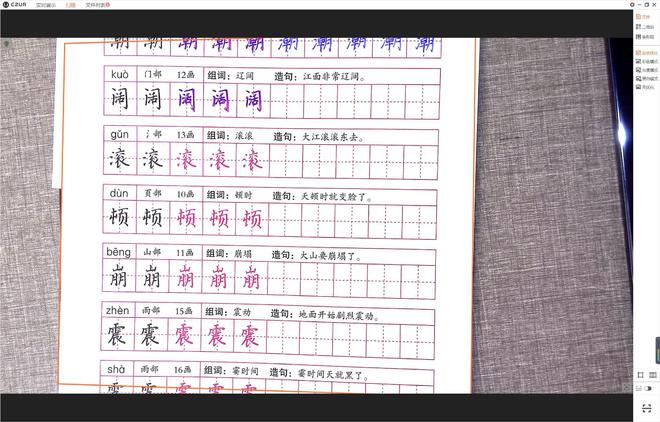 CZUR 实时展示 扫描 文件列表
潮 潮 潮 潮 潮 潮 潮 潮 潮 潮
kuò 门部 12画 组词：辽阔 造句：江面非常辽阔。
阔 阔 阔 阔 阔
gǔn 氵部 13画 组词：滚滚 造句：大江滚滚东去。
滚 滚 滚 滚 滚
dùn 页部 10画 组词：顿时 造句：天顿时就变脸了。
顿 顿 顿 顿 顿
bēng 山部 11画 组词：崩塌 造句：大山要崩塌了。
崩 崩 崩 崩 崩
zhèn 雨部 15画 组词：震动 造句：地面开始剧烈震动。
震 震 震 震 震
shà 雨部 16画 组词：霎时间 造句：霎时间天就黑了。